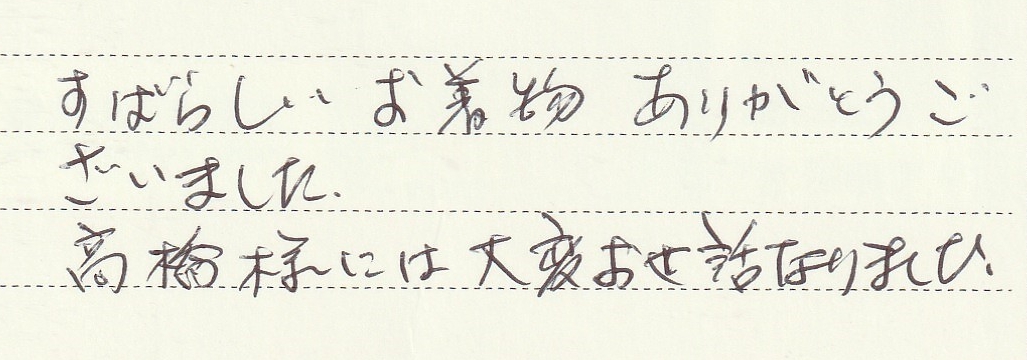 すばらしい お着物 ありがとうご
ざいました.
高橋様には大変お世話なりました.